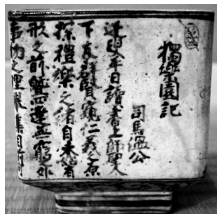 獨樂園記
司馬溫公
迂叟平日讀書上師聖人
下友群賢窺仁義之原
探禮樂之緒自未始有
形之前暨四達無窮之外
事物之理舉集目前